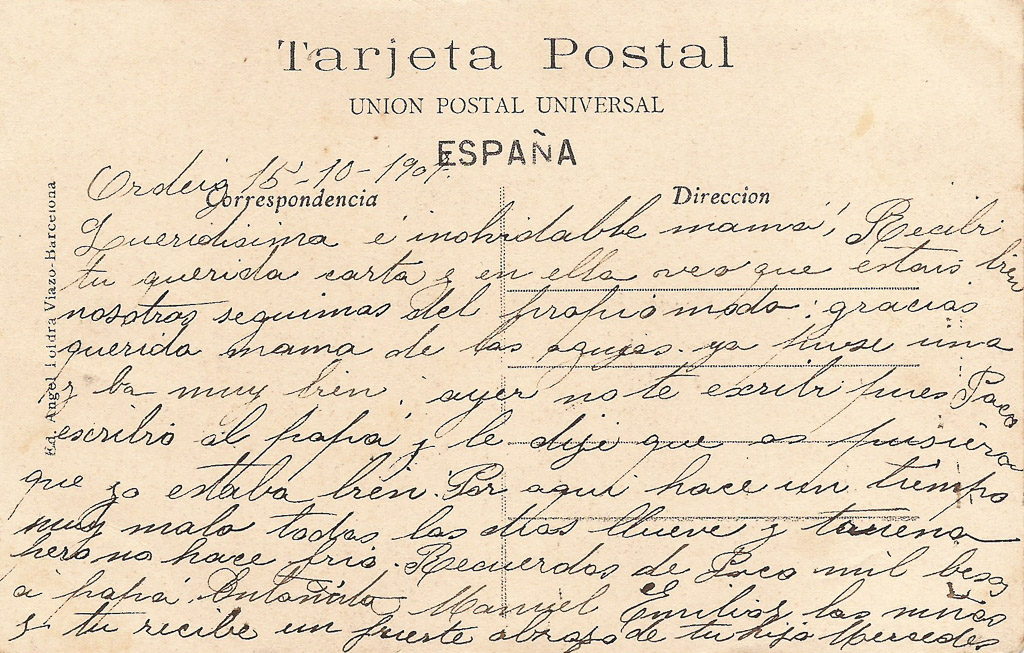 Tarjeta Postal
UNION POSTAL UNIVERSAL
ESPAÑA
Ordeig 15-10-1907.
Correspondencia
Direccion
Ed. Angel Toldrá Viazo-Barcelona
Queridisima é inolvidabble mamá! Recibi
tu querida carta y en ella veo que estais bien
nosotros seguimos del propio modo; gracias
querida mama de las agujas. ya puse una
y ba muy bien; ayer no te escribi pues Paco
escribió al papa y le dije que os pusiera
que yo estaba bien. Por aqui hace un tiempo
muy malo todos los dias llueve y truena
pero no hace frio. Recuerdos de Paco mil besos
á papá, Antoñito, Manuel Emilio, los niños
y tu recibe un fuerte abrazo de tu hija Mercedes